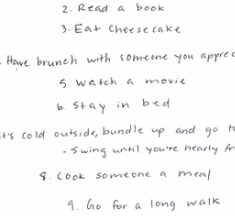 2. Read a book
3. Eat cheesecake
. Have brunch with someone you apprec
5. Watch a movie
6. Stay in bed
it's cold outside, bundle up and go to
- Swing until you're nearly fr
8. Cook someone a meal
9. Go for a long walk